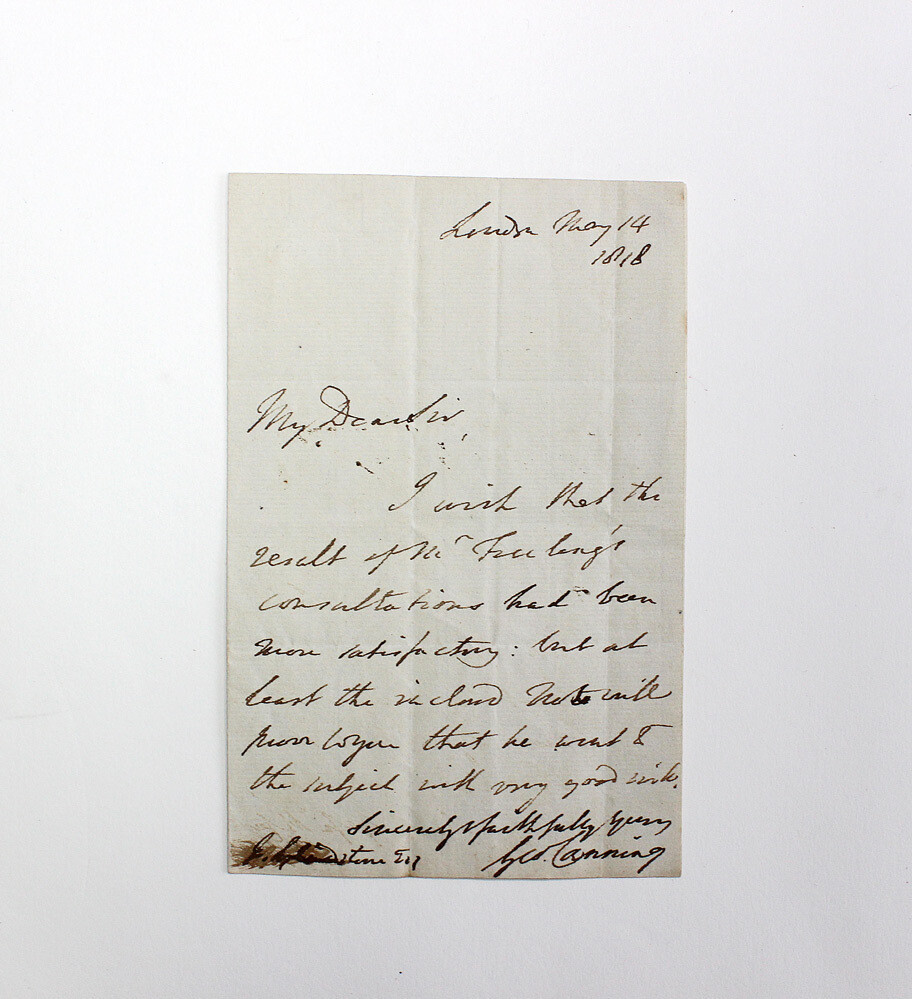 London May 14
1818
My Dear Sir
I wish that the
result of Mr Freeling's
consultations had been
more satisfactory: but at
least the inclosed Note will
prove to you that he went to
the subject with very good will.
Sincerely & faithfully yours
Geo. Canning
J. Gladstone Esq